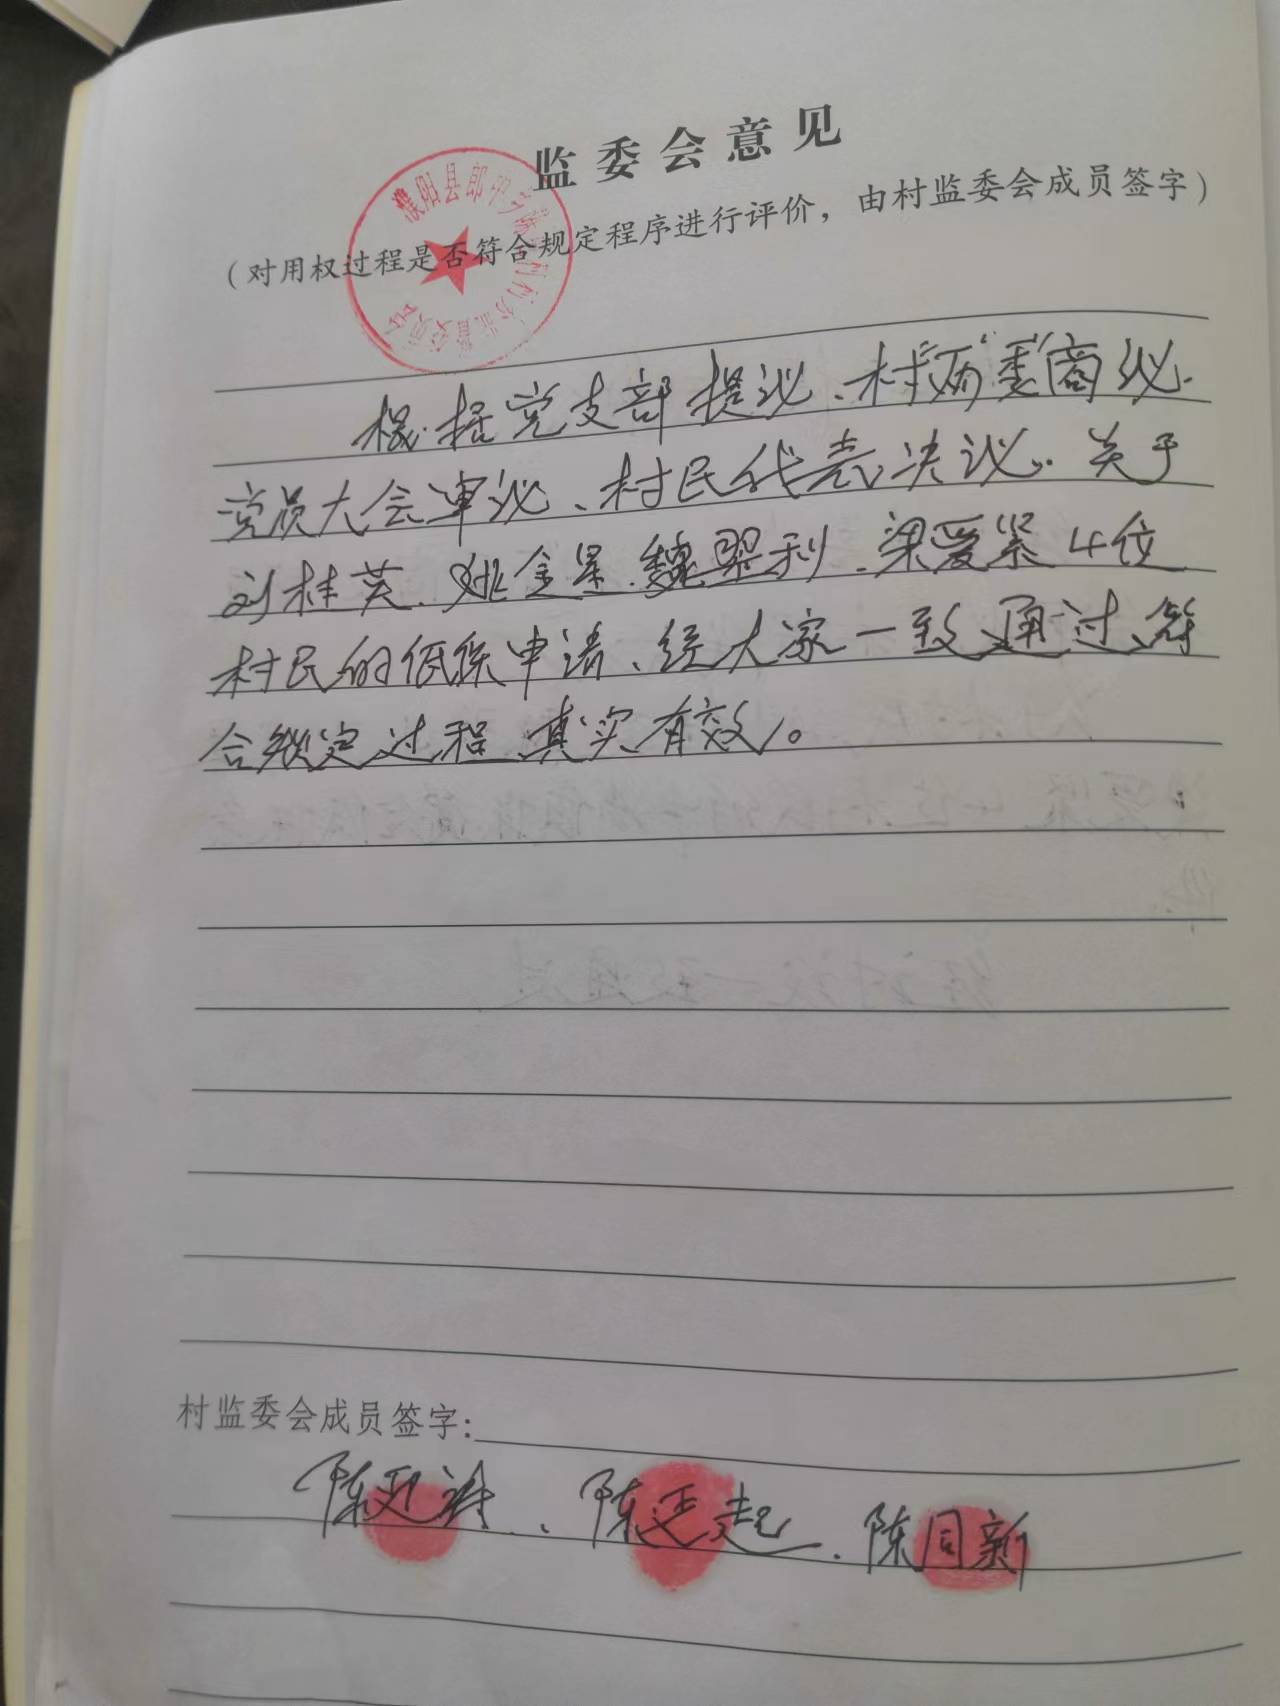 监委会意见
濮阳县郎中乡陈
村务监督委员会
（对用权过程是否符合规定程序进行评价，由村监委会成员签字）
根据党支部提议、村“两”“委”商议、
党员大会审议、村民代表决议。关于
刘桂英、姚金星、魏翠利、梁爱紧4位
村民的低保申请、经大家一致通过、符
合规定过程、真实有效。
村监委会成员签字：
陈 、陈廷起、陈同新